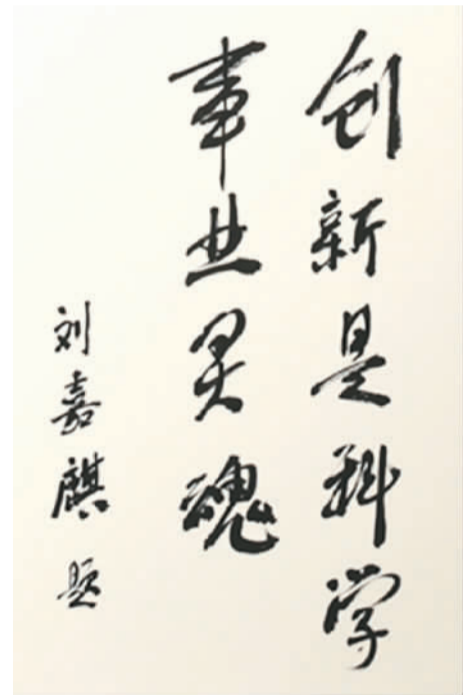 创新是科学
事业灵魂
刘嘉麒题